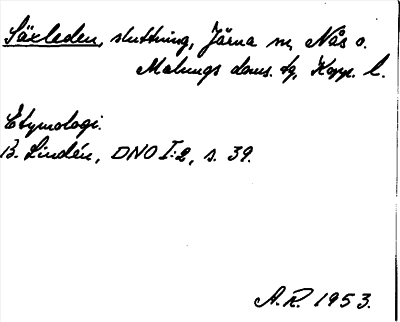 Säxleden, sluttning, Järna sn, Nås o.
Malungs doms. tg, Kopp. l.
Etymologi.
B. Lindén, DNO I:2, s. 39.
A.R. 1953.